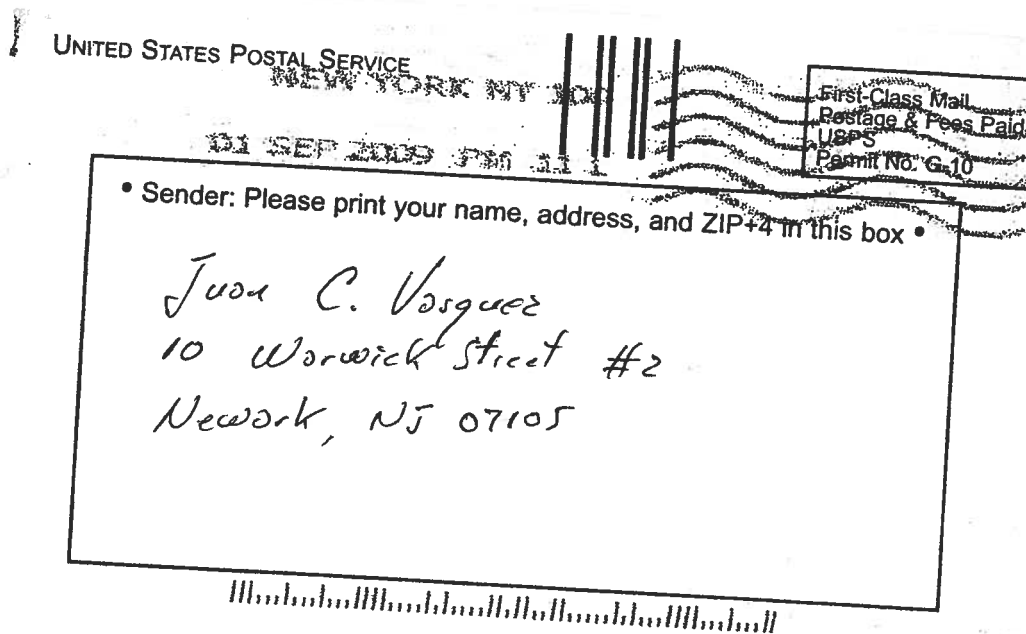 UNITED STATES POSTAL SERVICE
NEW YORK NY 100
01 SEP 2009 PM 11 L
First-Class Mail
Postage & Fees Paid
USPS
Permit No. G-10
• Sender: Please print your name, address, and ZIP+4 in this box •
Juan C. Vasquez
10 Warwick Street #2
Newark, NJ 07105